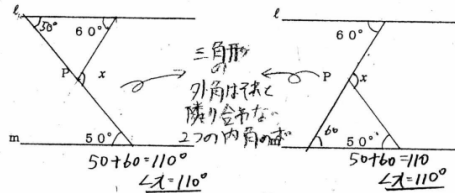 ℓ
50°
60°
P
x
m
50°
50+60=110°
∠x=110°
三角形
の
外角はそれと
隣り合わない
2つの内角の和
ℓ
60°
P
x
60
50°
50+60=110
∠x=110°